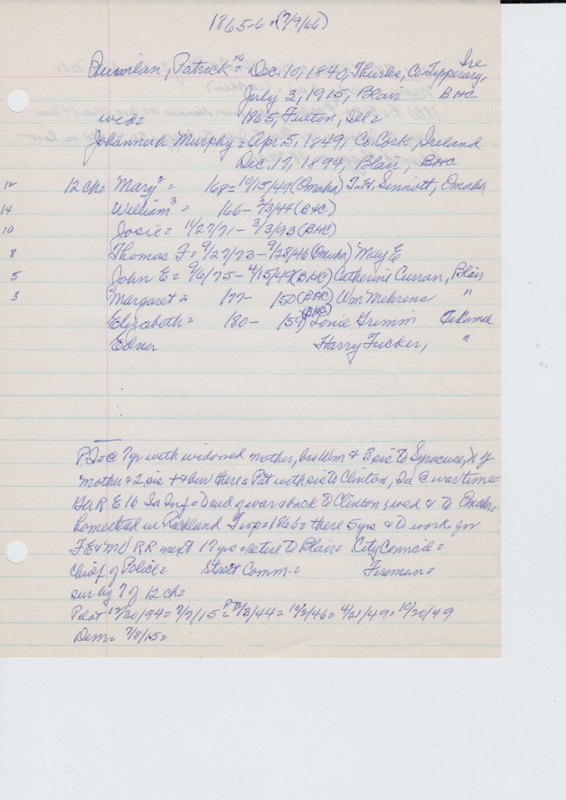 1865-6 = (7/9/66)
Quinlan, Patrick = Dec. 10, 1840, Thurles, Co. Tipperary, Ire
July 3, 1915, Blair BHC
wed = 1865, Fulton, Ill =
Johannah Murphy = Apr. 5, 1849, Co. Cork, Ireland
Dec. 17, 1894, Blair, BHC
12 12 ch = Mary = 168 = 10/15/49 (Omaha) T.H. Sinnott, Omaha
14 William = 166 - 3/3/44 (BHC)
10 Josie = 11/27/71 - 3/3/93 (BHC)
8 Thomas F = 9/27/73 - 9/28/46 (Omaha) May E
5 John E = 9/6/75 - 4/15/49 (BHC) Catherine Curran, Blair
3 Margaret = 177 - 150 (BHC) Wm Mehrens "
Elizabeth = 180 - 159 (BHC) Louie Grimm Tekamah
Edner Harry Tucker, "
P.I = @ 7 yr with widowed mother, bro Wm & 3 sis to Syracuse, N.Y
mother & 2 sis there = Pat with sis to Clinton, Ia @ wartime =
GAR E 16 Ia Inf = End of war = back to Clinton = wed & to Omaha =
homestead in Richland Twp = 1866 = there 5 yrs & to work for
FE & MV RR next 17 yrs = retire to Blair = City Council =
Chief of Police = Street Comm. = Fireman =
sur by 7 of 12 ch =
Pilot 12/20/94 = 7/7/15 = 3/8/44 = 10/2/46 = 4/21/49 = 10/20/49
Dem = 7/8/15 =